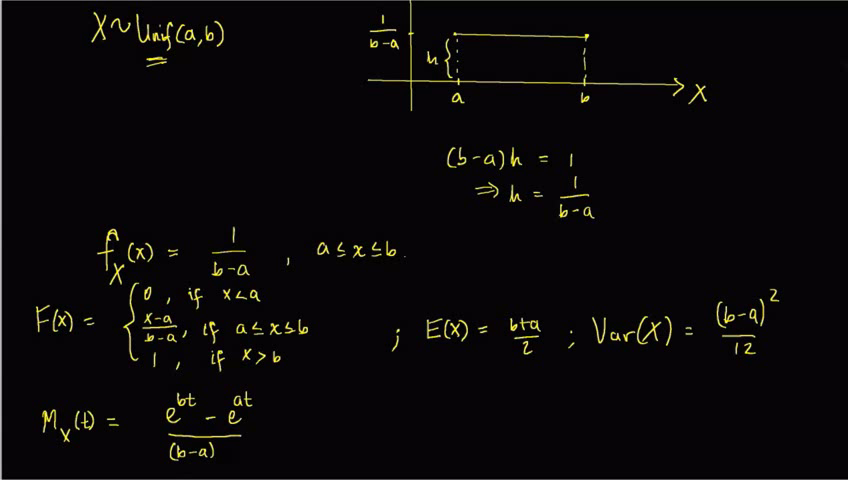 X ~ Unif(a,b)
1/(b-a)
h
a b X
(b-a)h = 1
⇒ h = 1/(b-a)
f_X(x) = 1/(b-a) , a ≤ x ≤ b.
F(x) = { 0 , if x < a
(x-a)/(b-a) , if a ≤ x ≤ b
1 , if x > b
; E(X) = (b+a)/2 ; Var(X) = (b-a)^2/12
M_X(t) = (e^{bt} - e^{at})/(b-a)